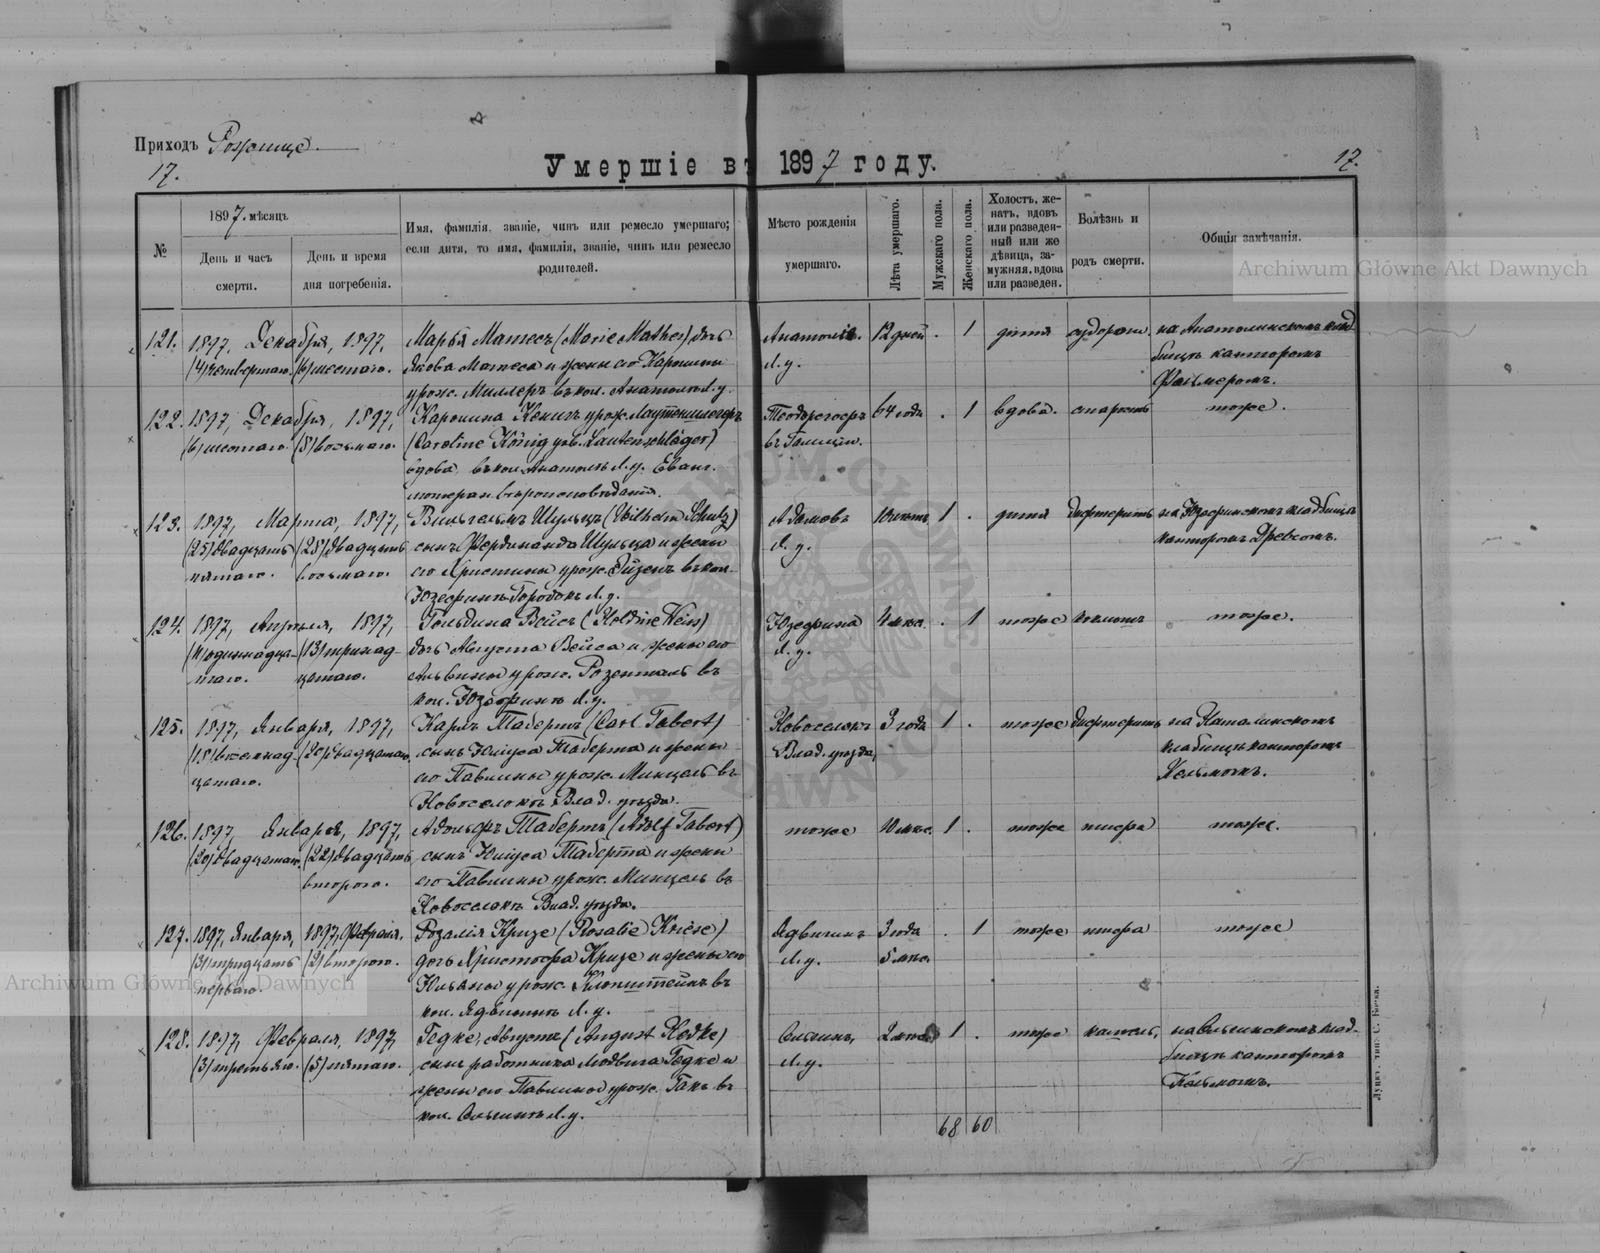 Приходъ Рожище.
17.
Умершіе въ 1897 году.
17.
№
1897. мѣсяцъ
День и часъ смерти.
День и время дня погребенія.
Имя, фамилія, званіе, чинъ или ремесло умершаго;
если дитя, то имя, фамилія, званіе, чинъ или ремесло
родителей.
Мѣсто рожденія
умершаго.
Лѣта умершаго.
Мужскаго пола.
Женскаго пола.
Холостъ, же-
натъ, вдовъ
или разведен-
ный или же
дѣвица, за-
мужняя, вдова
или разведен.
Болѣзнь и
родъ смерти.
Общія замѣчанія.
Archiwum Główne Akt Dawnych
121. 1897, Декабря, 1897, Марья Матесъ (Marie Mathes) дочь Анатолія. 12 дней . 1 дитя судороги. на Анатолинскомъ клад-
(4) четвертаго. (6) шестаго. Якова Матеса и жены его Каролины Л. у. бищѣ канторомъ
урож. Миллеръ въ кол. Анатолія Л. у.
122. 1897, Декабря, 1897, Каролина Кенигъ урож. Лаутеншлегеръ 64 года . 1 вдова. старость тоже.
(6) шестаго. (8) восьмаго. (Caroline König geb. Lautenschläger) въ Галиціи.
вдова въ кол. Анатолія Л. у. Еванг.
лютеран. вѣроисповѣданія.
123. 1897, Марта, 1897, Вильгельмъ Шульцъ (Wilhelm Schulz) Адамовъ 1 . дитя дифтеритъ на Юзефинскомъ кладбищѣ
(25) двадцать (28) двадцать сынъ Фердинанда Шульца и жены Л. у. канторомъ Древсомъ.
пятаго. восьмаго. его Христины урож. въ кол.
Юзефинъ Городокъ Л. у.
124. 1897, Апрѣля, 1897, Гольдина Вейсъ (Goldine Weis) Юзефина 4 мѣс. . 1 тоже тоже.
(11) одиннадца- (13) тринад- дочь Августа Вейса и жены его Л. у.
таго. цатаго. Альвины урож. Розенталь въ
кол. Юзефинъ Л. у.
125. 1897, Января, 1897, Карлъ Табертъ (Carl Tabert) Новоселокъ 3 года 1 . тоже дифтеритъ на Наталинскомъ
(18) восемнад- (20) двадцатаго. сынъ Юліуса Таберта и жены Влад. уѣзда, кладбищѣ канторомъ
цатаго. его Павлины урож. Минцель въ
Новоселокъ Влад. уѣзда.
126. 1897, Января, 1897, Адольфъ Табертъ (Adolf Tabert) тоже 10 мѣс. 1 . тоже тоже.
(20) двадцатаго. (22) двадцать сынъ Юліуса Таберта и жены
втораго. его Павлины урож. Минцель въ
Новоселокъ Влад. уѣзда.
127. 1897, Января, 1897, Февраля. Розалія Кризе (Rosalie Kriese) 3 года . 1 тоже тоже
(31) тридцать (2) втораго. дочь Христофа Кризе и жены его Л. у. 5 мѣс.
перваго. Юльяны урож. въ
кол. Л. у.
128. 1897, Февраля, 1897, Гедке, Августъ (August Hedke) 1 . тоже кашель,
(3) третьяго. (5) пятаго. сынъ работника Людвига Гедке и Л. у. бищѣ канторомъ
жены его Павлины урож. въ
кол. Л. у.
68 60
Archiwum Główne Akt Dawnych